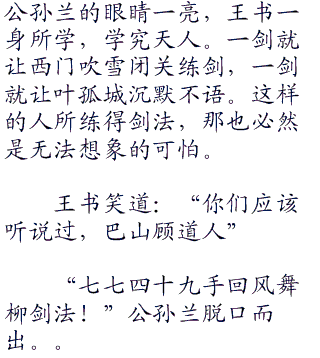 公孙兰的眼睛一亮，王书一
身所学，学究天人。一剑就
让西门吹雪闭关练剑，一剑
就让叶孤城沉默不语。这样
的人所练得剑法，那也必然
是无法想象的可怕。
王书笑道：“你们应该
听说过，巴山顾道人”
“七七四十九手回风舞
柳剑法！”公孙兰脱口而
出。。